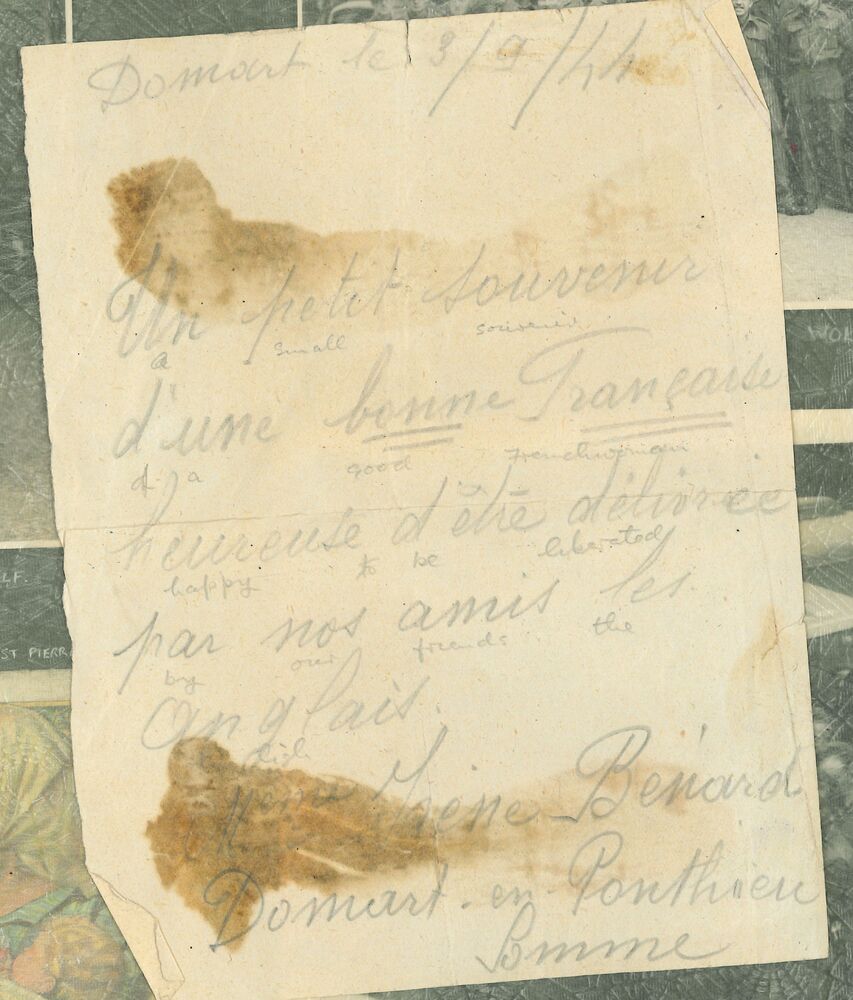 Domart le 3/9/44
Un petit souvenir
a small souvenir
d'une bonne Française
of a good Frenchwoman
heureuse d'être délivrée
happy to be liberated
par nos amis les
by our friends the
anglais.
Mme Irène Bénard
Domart-en-Ponthieu
Somme
ST PIERRE
LF.
WOL